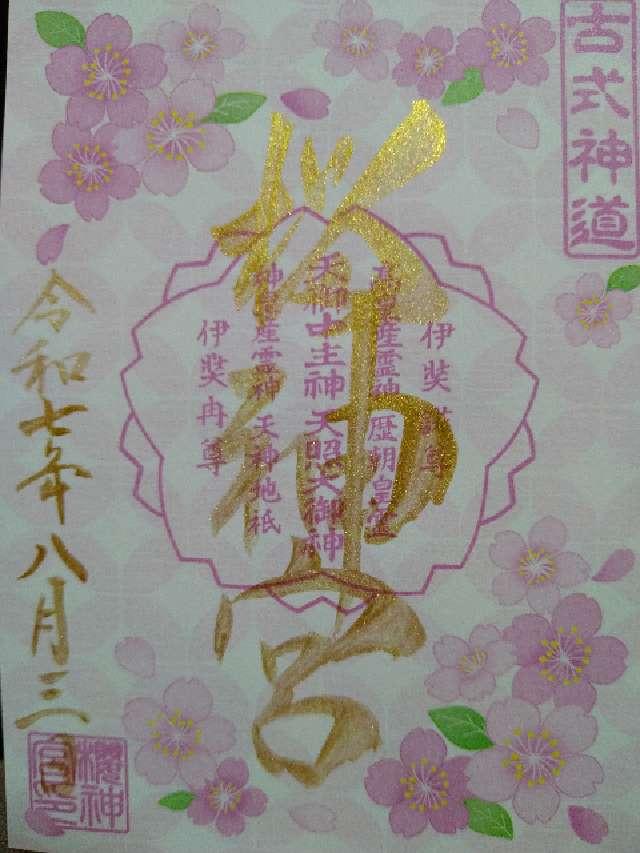 古式神道
桜神宮
伊奘諾尊
高皇産霊神 歴朝皇霊
天御中主神 天照大御神
神皇産霊神 天神地祇
伊奘冉尊
令和七年八月三日
櫻神宮印